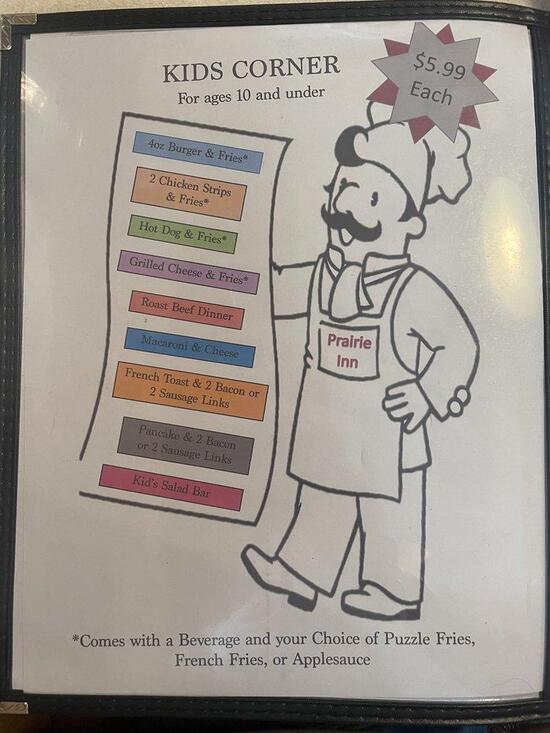 KIDS CORNER
For ages 10 and under
$5.99
Each
4oz Burger & Fries*
2 Chicken Strips
& Fries*
Hot Dog & Fries*
Grilled Cheese & Fries*
Roast Beef Dinner
Macaroni & Cheese
French Toast & 2 Bacon or
2 Sausage Links
Pancake & 2 Bacon
or 2 Sausage Links
Kid's Salad Bar
Prairie
Inn
*Comes with a Beverage and your Choice of Puzzle Fries,
French Fries, or Applesauce